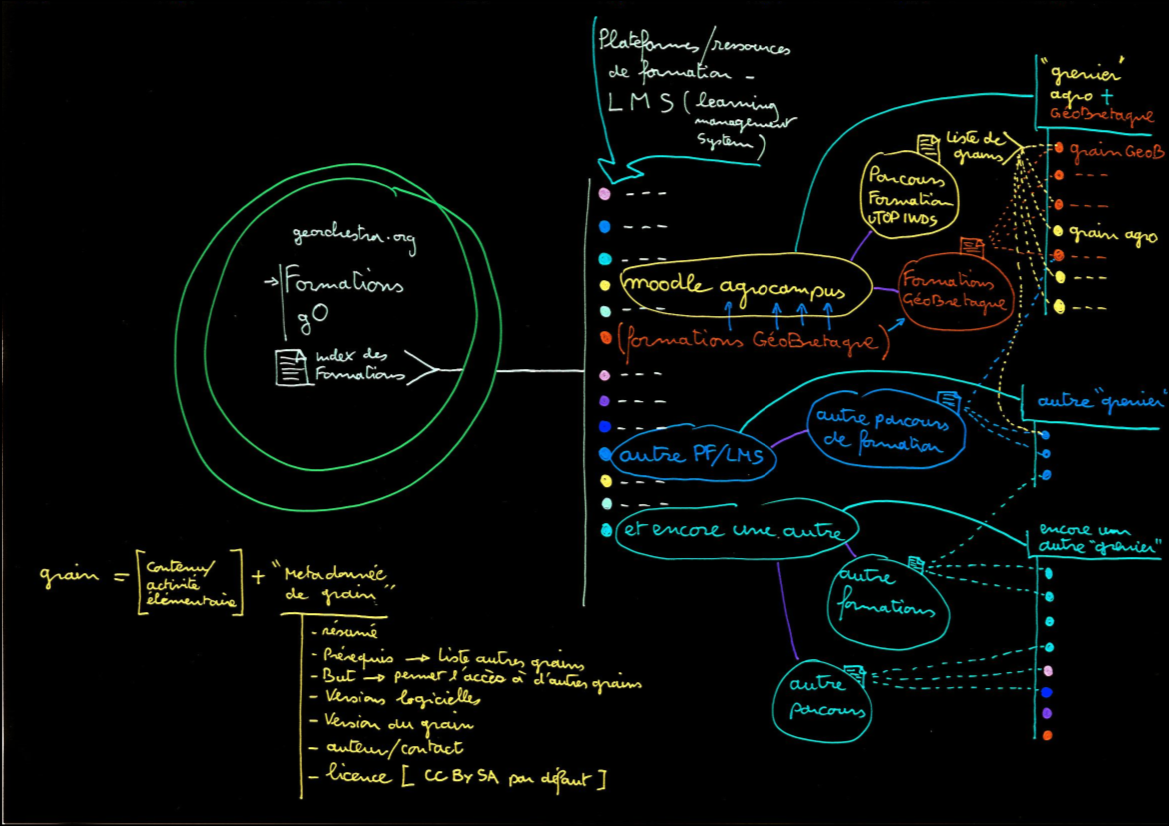 georchestra.org
→ Formations
gO
index des
Formations
grain = [contenu/
activité
élémentaire] + "Metadonnée
de grain"
- résumé
- Prérequis → liste autres grains
- But → permet l'accès à d'autres grains
- Versions logicielles
- Version du grain
- auteur/contact
- licence [ CC By SA par défaut ]
Plateformes/ressources
de formation -
LMS (learning
management
System)
moodle agrocampus
(formations GéoBretagne)
autre PF/LMS
et encore une autre
Parcours
Formation
UTOP IWDS
Liste de
grains
Formations
GéoBretagne
autre parcours
de formation
autre
formations
autre
parcours
"grenier"
agro +
GéoBretagne
grain GéoB
grain agro
autre "grenier"
encore un
autre "grenier"